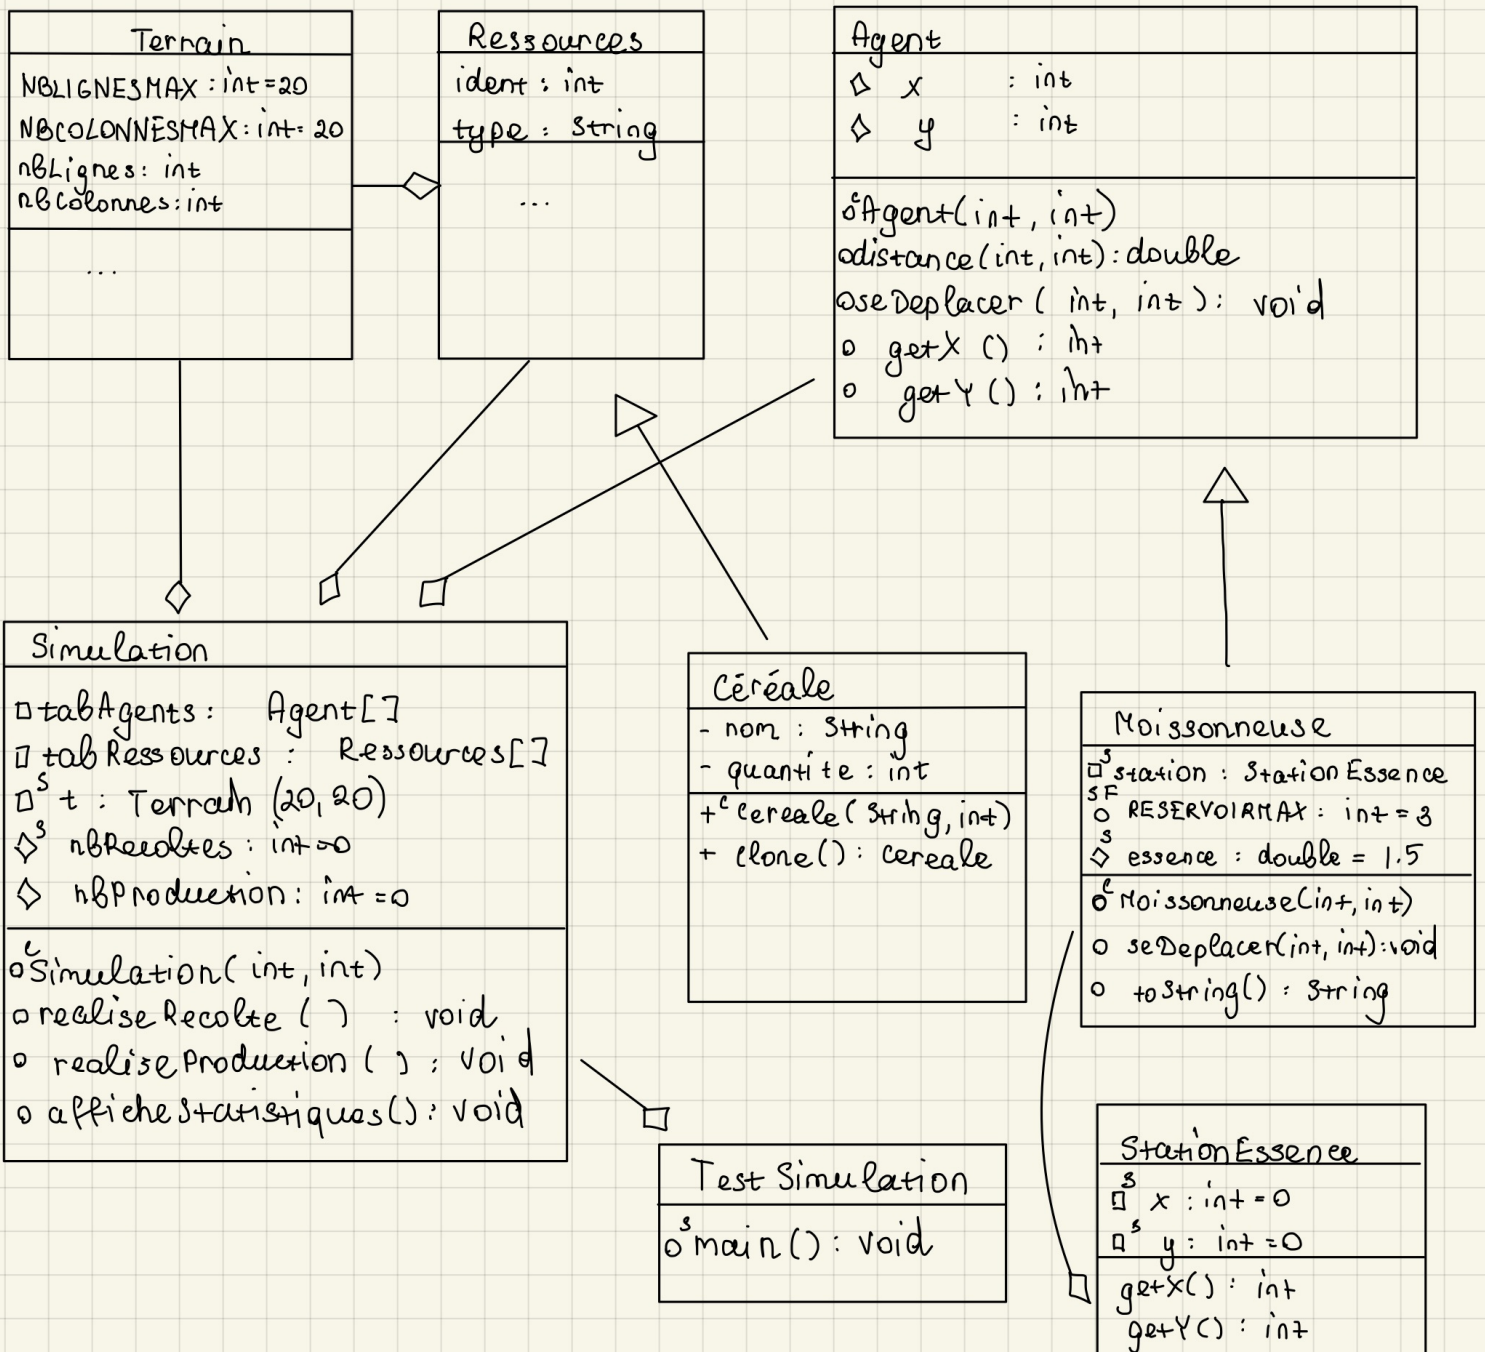 Terrain
NBLIGNESMAX : int = 20
NBCOLONNESMAX : int = 20
nbLignes : int
nbColonnes : int
...
Ressources
ident : int
type : String
...
Agent
x : int
y : int
c Agent(int, int)
distance(int, int) : double
seDeplacer ( int, int ) : void
getX () : int
getY () : int
Simulation
tabAgents : Agent[]
tabRessources : Ressources[]
s t : Terrain (20,20)
s nbRecoltes : int = 0
nbProduction : int = 0
c Simulation( int, int)
realiseRecolte ( ) : void
realiseProduction ( ) : void
afficheStatistiques() : void
Céréale
- nom : String
- quantite : int
+ c Cereale( String, int)
+ clone() : cereale
Moissonneuse
s station : StationEssence
SF RESERVOIRMAX : int = 3
s essence : double = 1.5
c Moissonneuse(int, int)
seDeplacer(int, int) : void
toString() : String
Test Simulation
s main() : void
StationEssence
s x : int = 0
s y : int = 0
getX() : int
getY() : int